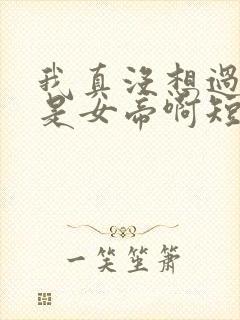 我真没想过
是女帝啊短
一笑坐萧